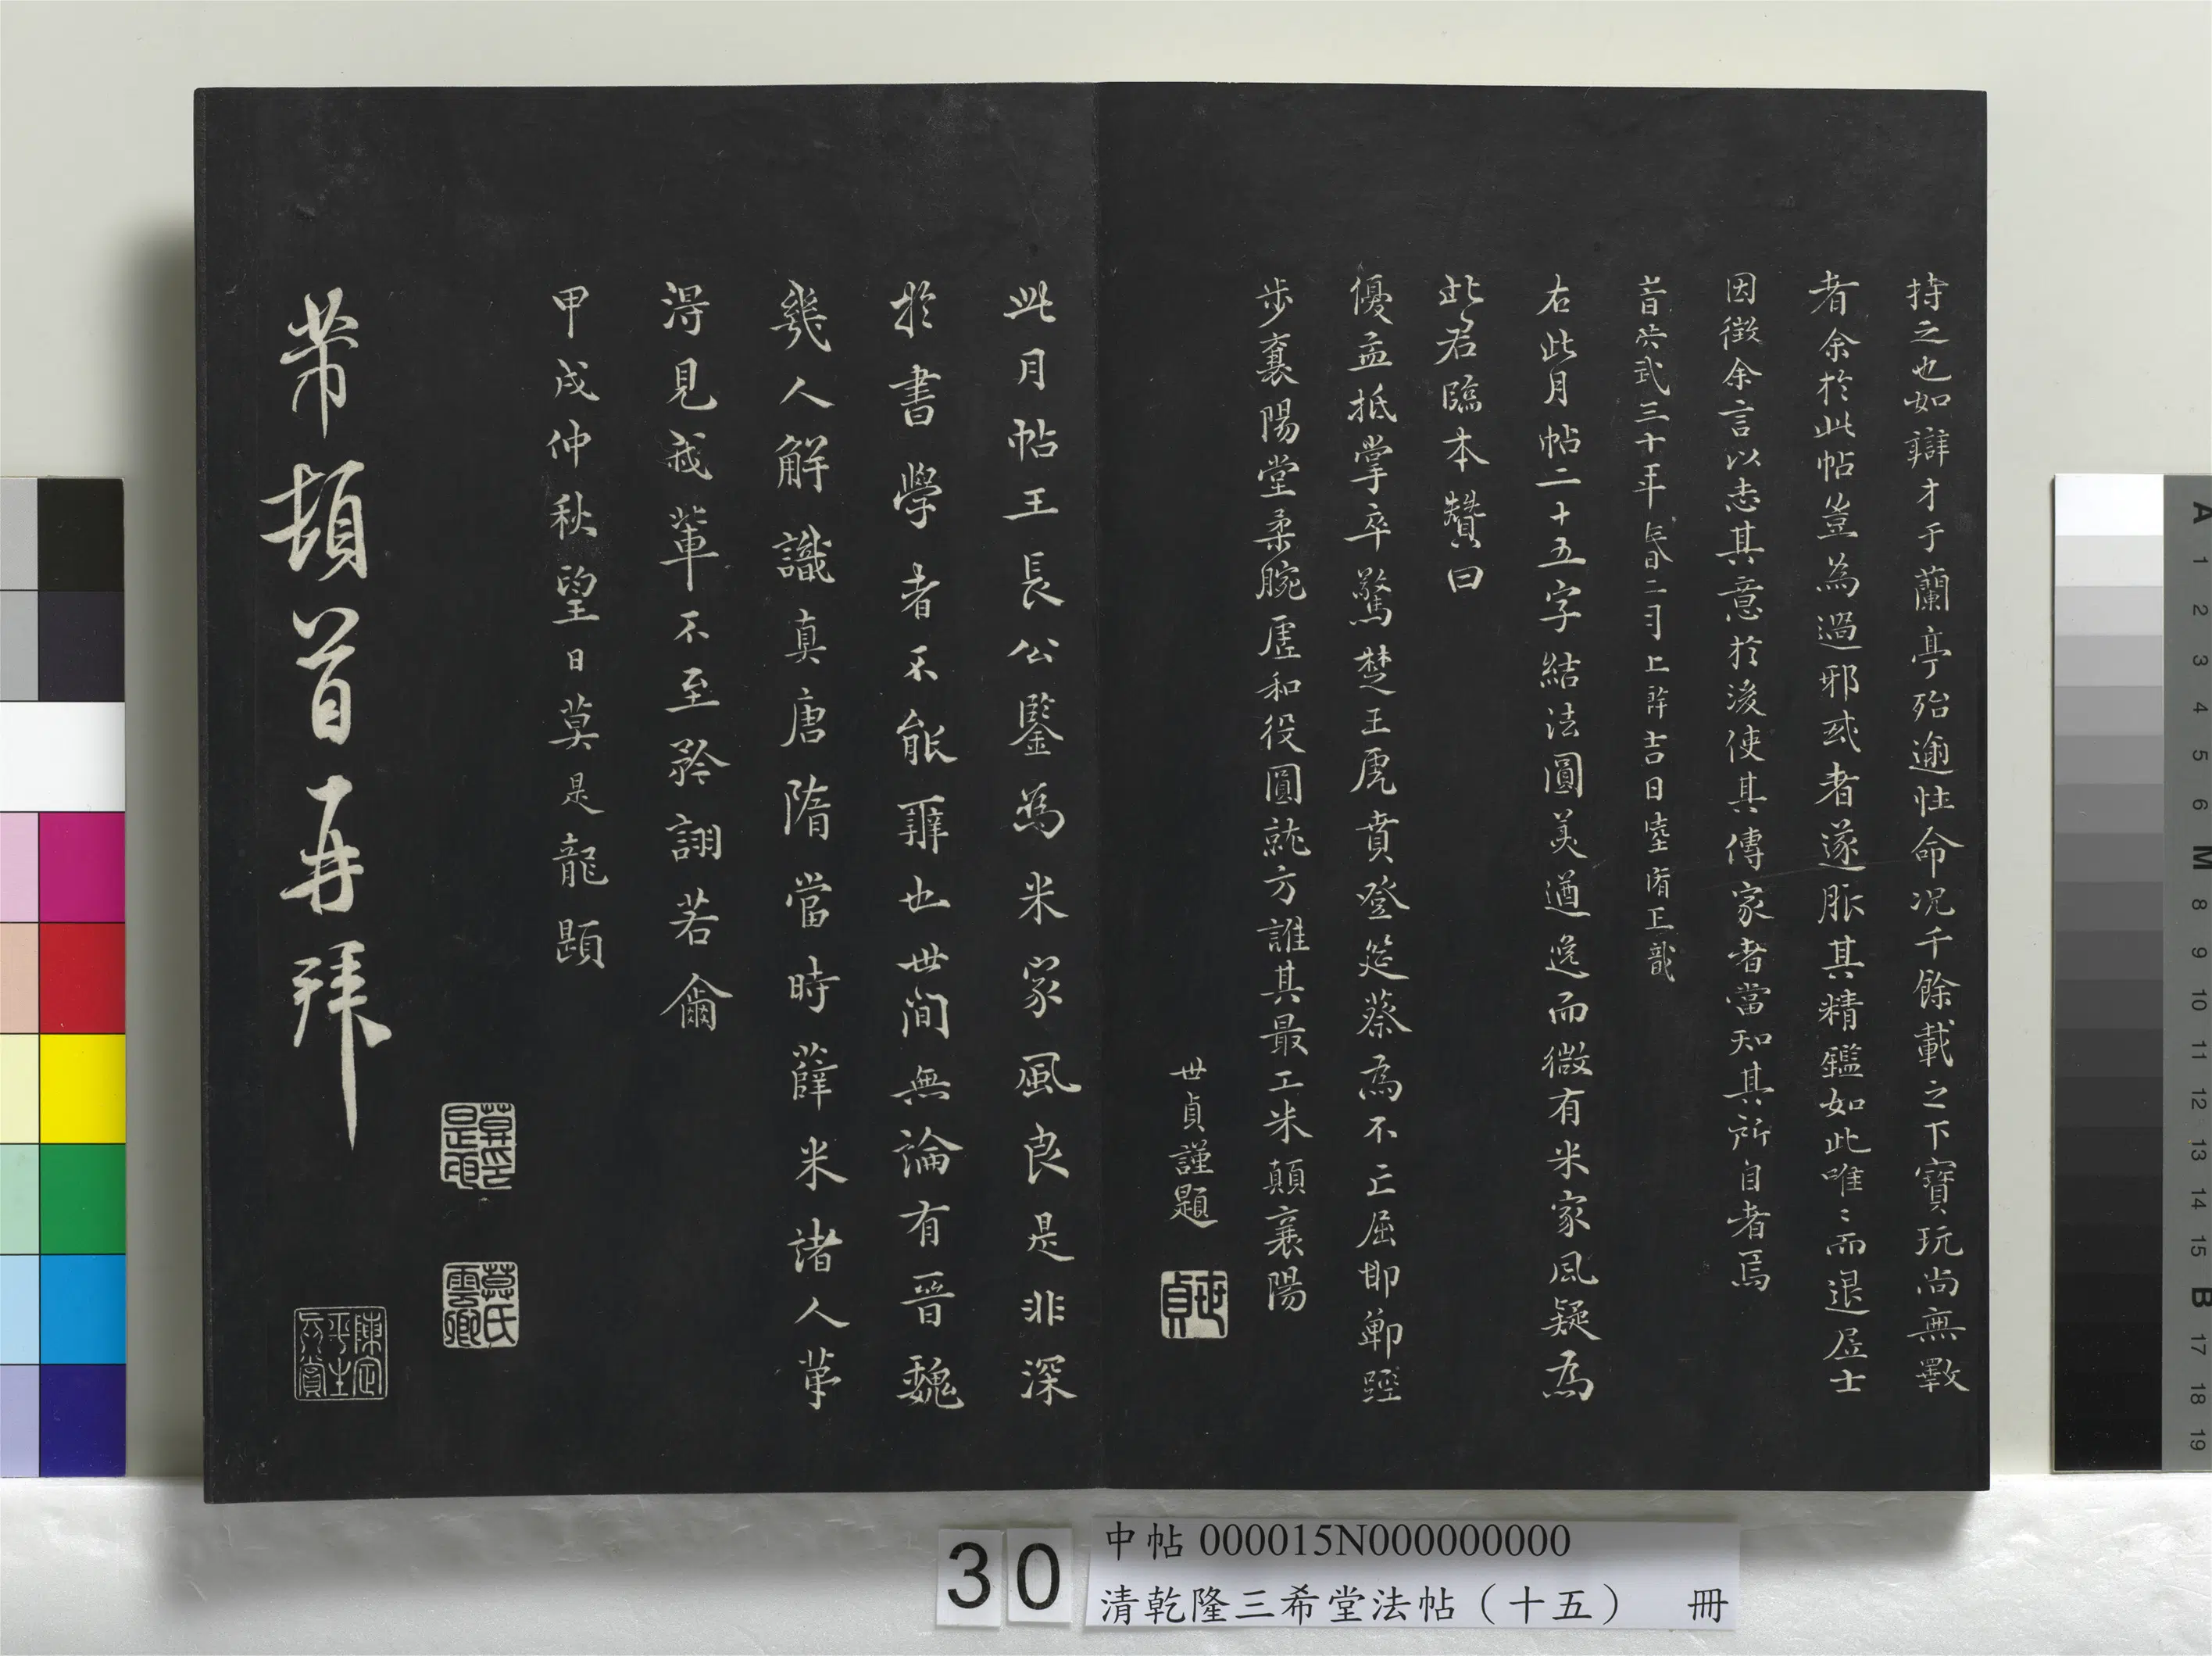 持之也如辯才于蘭亭殆逾性命况千餘載之下寶玩尚無斁
者余於此帖豈為過邪或者遂服其精鑑如此唯〻而退居士
因徵余言以志其意於後使其傳家者當知其所自者焉
三十年
二月上
吉日
右此月帖二十五字結法圓美遒逸而微有米家風疑為
此君臨本贊曰
優孟抵掌卒驚楚王虎賁登筵蔡為不亡屈邯鄲踁
步襄陽堂柔腕虛和役圓就方誰其最工米顛襄陽
世貞謹題
世貞
此月帖王長公鑒為米家風良是非深
於書學者不能辨也世間無論有晉魏
幾人解識真唐隋當時薛米諸人苐
得見我輩不至矜詡若爾
甲戌仲秋望日莫是龍題
莫氏雲卿
芾頓首再拜
陳定平生真賞
30
中帖 000015N000000000
清乾隆三希堂法帖（十五） 冊
A 1 2 3 4 5 6 M 8 9 10 11 12 13 14 15 B 17 18 19